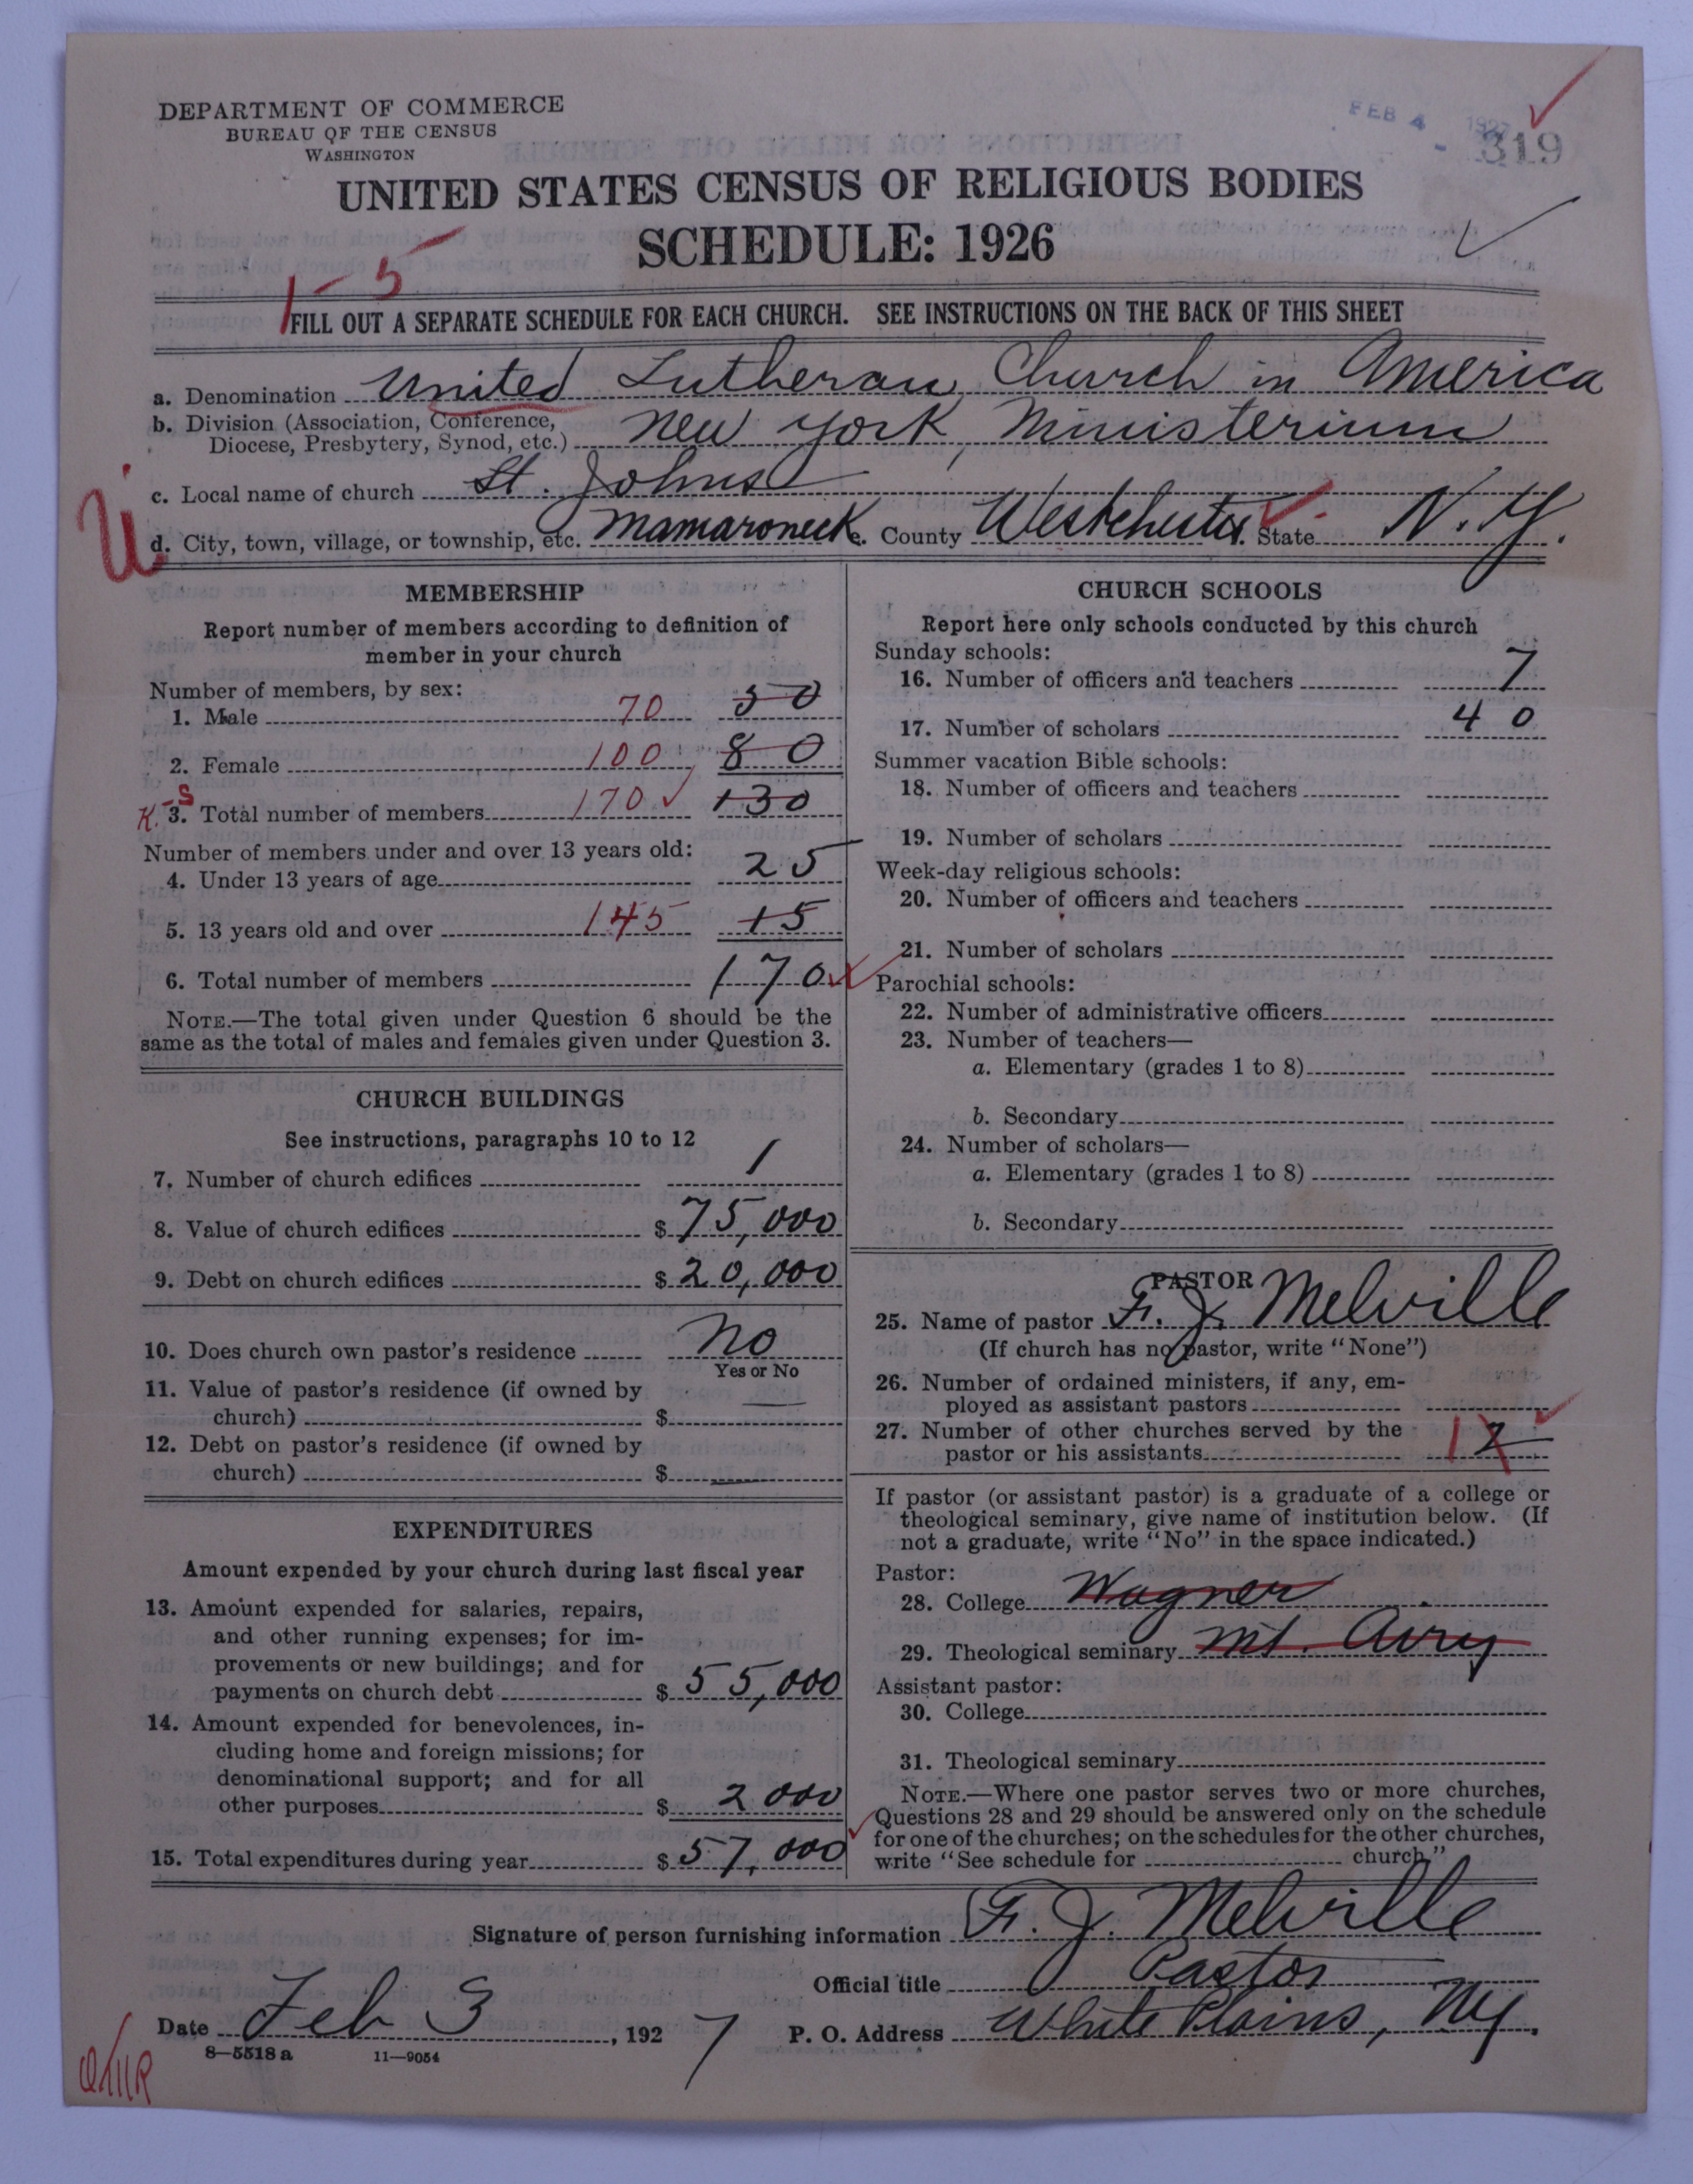 DEPARTMENT OF COMMERCE
BUREAU OF THE CENSUS
WASHINGTON
FEB 4 1927
319
UNITED STATES CENSUS OF RELIGIOUS BODIES
SCHEDULE: 1926
1-5
FILL OUT A SEPARATE SCHEDULE FOR EACH CHURCH. SEE INSTRUCTIONS ON THE BACK OF THIS SHEET
a. Denomination United Lutheran Church in America
b. Division (Association, Conference,
Diocese, Presbytery, Synod, etc.) New York Ministerium
c. Local name of church St. Johns
d. City, town, village, or township, etc. Mamaroneck. County Westchester. State N. Y.
U
MEMBERSHIP
Report number of members according to definition of
member in your church
Number of members, by sex:
1. Male 70 50
2. Female 100 80
K.-S 3. Total number of members 170 130
Number of members under and over 13 years old:
4. Under 13 years of age 25
5. 13 years old and over 145 15
6. Total number of members 170
NOTE.—The total given under Question 6 should be the
same as the total of males and females given under Question 3.
CHURCH BUILDINGS
See instructions, paragraphs 10 to 12
7. Number of church edifices 1
8. Value of church edifices $ 75,000
9. Debt on church edifices $ 20,000
10. Does church own pastor's residence No
Yes or No
11. Value of pastor's residence (if owned by
church) $
12. Debt on pastor's residence (if owned by
church) $
EXPENDITURES
Amount expended by your church during last fiscal year
13. Amount expended for salaries, repairs,
and other running expenses; for im-
provements or new buildings; and for
payments on church debt $ 55,000
14. Amount expended for benevolences, in-
cluding home and foreign missions; for
denominational support; and for all
other purposes $ 2000
15. Total expenditures during year $ 57,000
CHURCH SCHOOLS
Report here only schools conducted by this church
Sunday schools:
16. Number of officers and teachers 7
17. Number of scholars 40
Summer vacation Bible schools:
18. Number of officers and teachers
19. Number of scholars
Week-day religious schools:
20. Number of officers and teachers
21. Number of scholars
Parochial schools:
22. Number of administrative officers
23. Number of teachers—
a. Elementary (grades 1 to 8)
b. Secondary
24. Number of scholars—
a. Elementary (grades 1 to 8)
b. Secondary
PASTOR
25. Name of pastor F. J. Melville
(If church has no pastor, write "None")
26. Number of ordained ministers, if any, em-
ployed as assistant pastors
27. Number of other churches served by the
pastor or his assistants 1 2
If pastor (or assistant pastor) is a graduate of a college or
theological seminary, give name of institution below. (If
not a graduate, write "No" in the space indicated.)
Pastor:
28. College Wagner
29. Theological seminary Mt. Airy
Assistant pastor:
30. College
31. Theological seminary
NOTE.—Where one pastor serves two or more churches,
Questions 28 and 29 should be answered only on the schedule
for one of the churches; on the schedules for the other churches,
write "See schedule for church."
Signature of person furnishing information F. J. Melville
Official title Pastor
Date Feb 3, 1927 P. O. Address White Plains, NY.
8—5518 a 11—9054